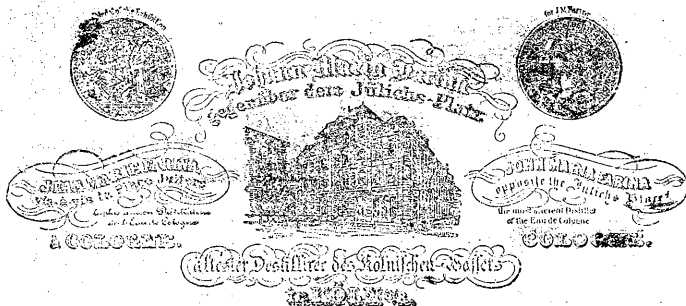 Medal of the Exhibition
for J.M. Farina
Johann Maria Farina
gegenüber dem Jülichs-Platz
JEAN MARIE FARINA
vis-à-vis la Place Juliers
le plus ancien Distillateur
de l'Eau de Cologne
à COLOGNE.
JOHN MARIA FARINA
opposite the Julichs Place
the most ancient Distiller
of the Eau de Cologne
COLOGNE.
ältester Destillirer des Kölnischen-Wassers
in KÖLN